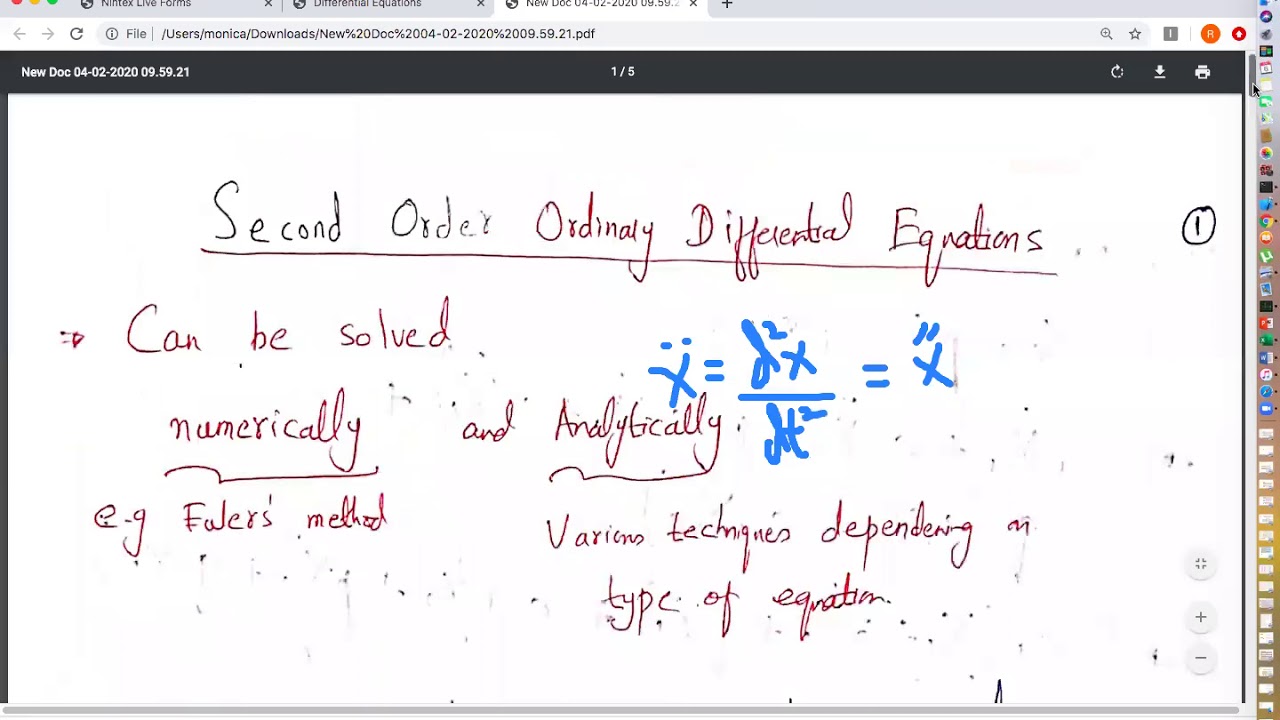 Nintex Live Forms × Differential Equations × New Doc 04-02-2020 09.59.2 × +
File | /Users/monica/Downloads/New%20Doc%2004-02-2020%2009.59.21.pdf R
New Doc 04-02-2020 09.59.21 1 / 5
Second Order Ordinary Differential Equations ①
⇒ Can be solved
ẍ = d²x/dt² = x''
numerically and Analytically.
e-g Euler's method
Various techniques depending on
type of equation.